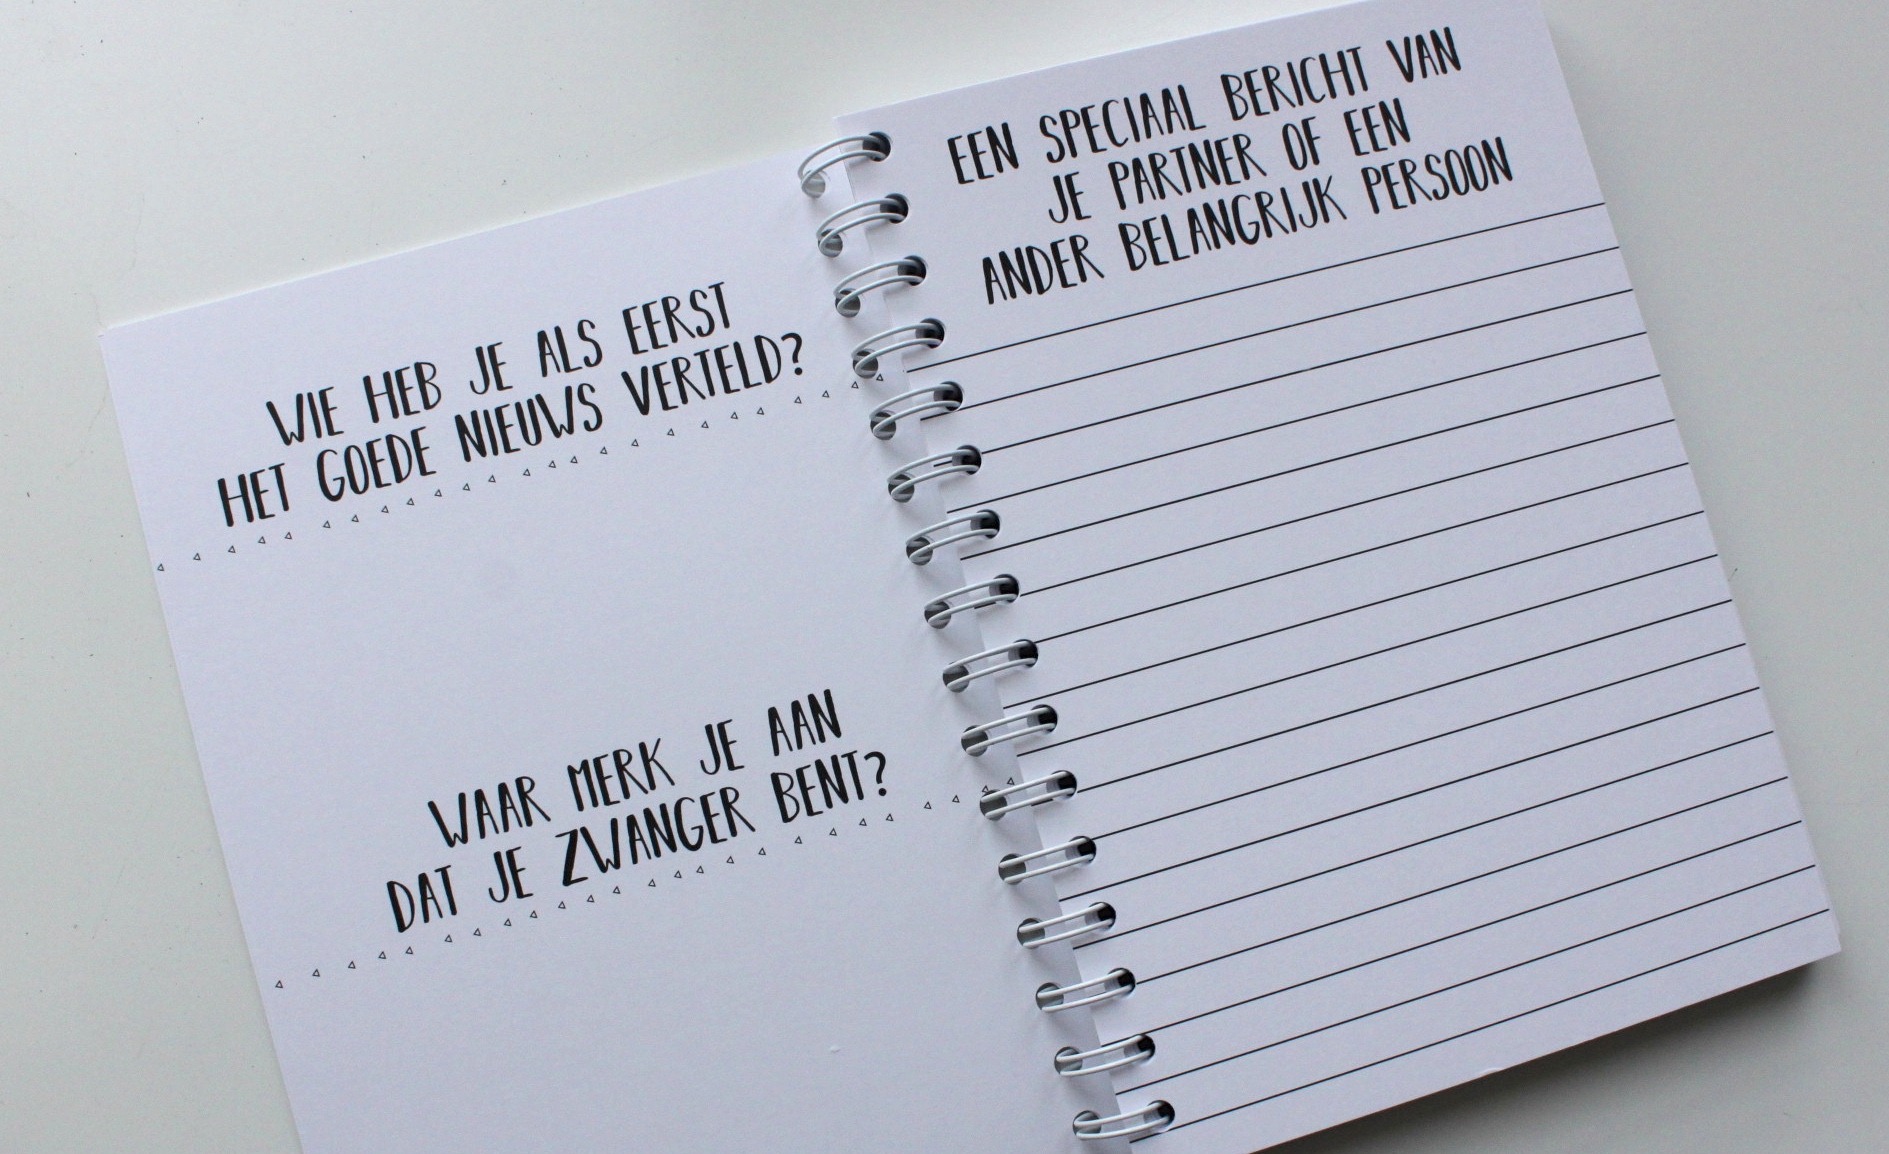 WIE HEB JE ALS EERST
HET GOEDE NIEUWS VERTELD?
WAAR MERK JE AAN
DAT JE ZWANGER BENT?
EEN SPECIAAL BERICHT VAN
JE PARTNER OF EEN
ANDER BELANGRIJK PERSOON